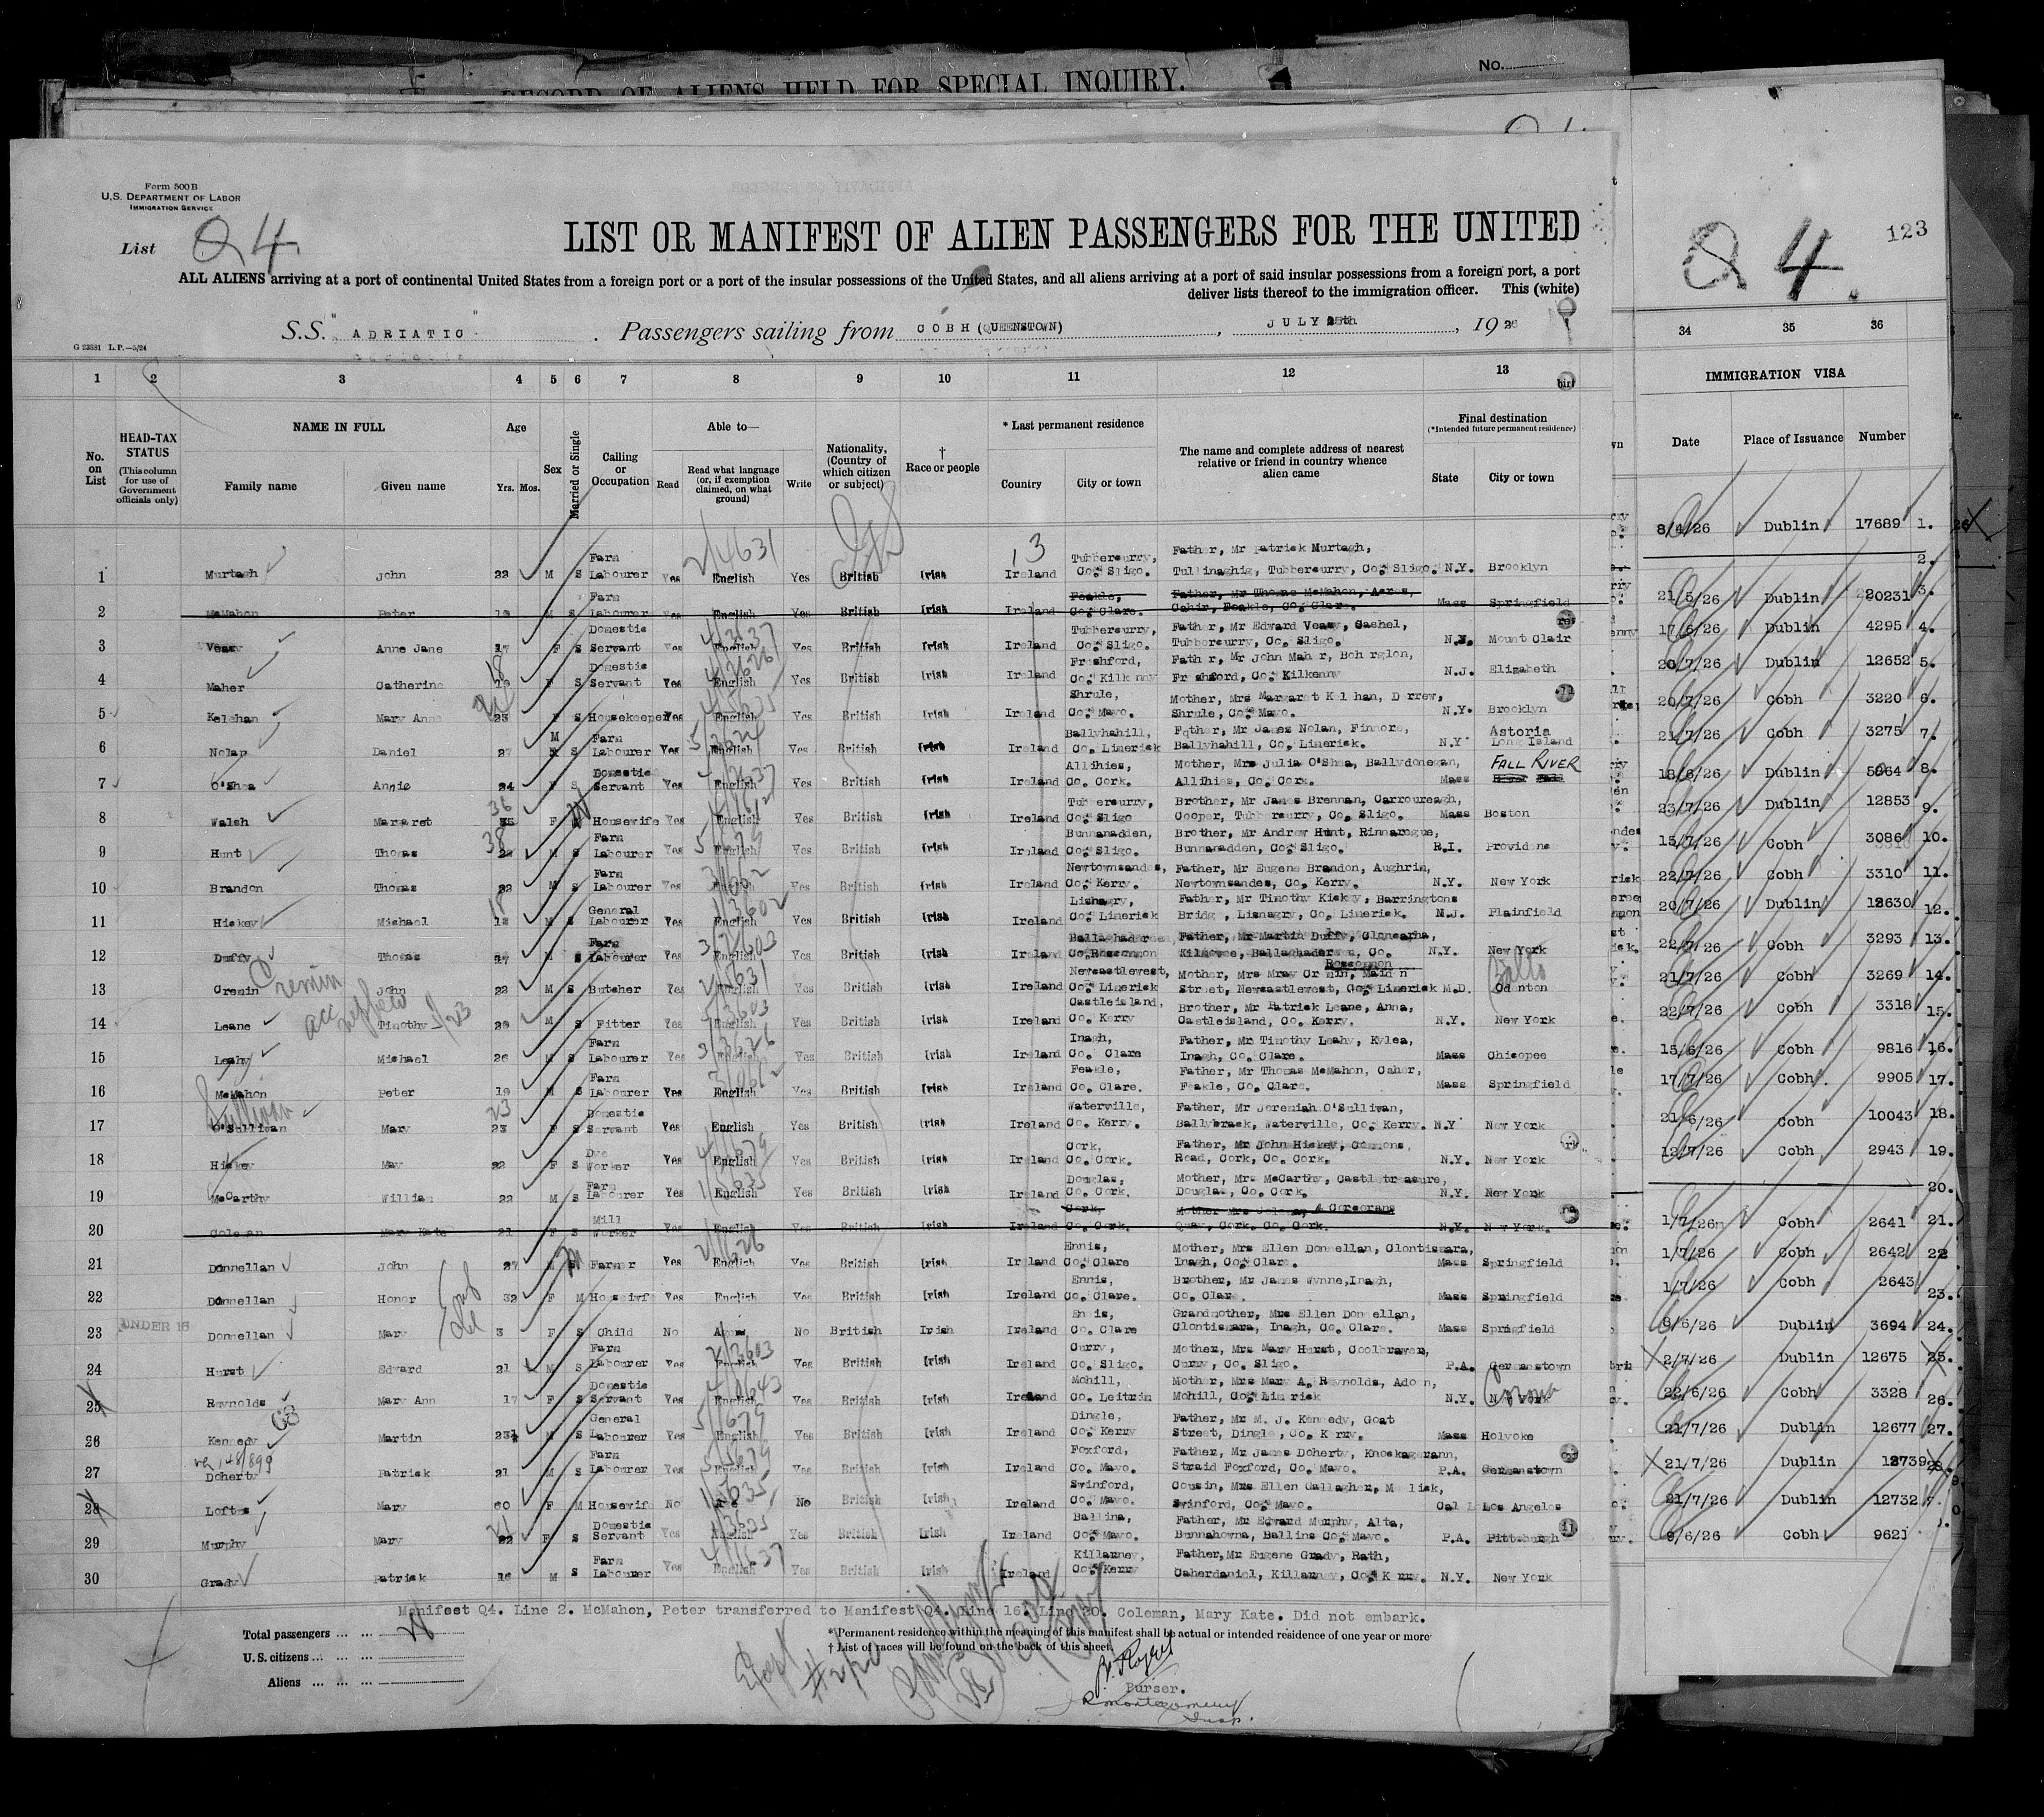 No.
RECORD OF ALIENS HELD FOR SPECIAL INQUIRY.
Form 500B
U.S. DEPARTMENT OF LABOR
IMMIGRATION SERVICE
List Q4.
LIST OR MANIFEST OF ALIEN PASSENGERS FOR THE UNITED
ALL ALIENS arriving at a port of continental United States from a foreign port or a port of the insular possessions of the United States, and all aliens arriving at a port of said insular possessions from a foreign port, a port
deliver lists thereof to the immigration officer. This (white)
S.S. "ADRIATIC". Passengers sailing from COBH (QUEENSTOWN), JULY 25th, 1926
G 23881 L.P.—5/24
1 2 3 4 5 6 7 8 9 10 11 12 13
No. on List
HEAD-TAX STATUS
(This column for use of Government officials only)
NAME IN FULL
Family name Given name
Age
Yrs. Mos.
Sex
Married or Single
Calling or Occupation
Able to—
Read
Read what language (or, if exemption claimed, on what ground)
Write
Nationality, (Country of which citizen or subject)
† Race or people
* Last permanent residence
Country City or town
The name and complete address of nearest relative or friend in country whence alien came
Final destination
(*Intended future permanent residence)
State City or town
1 Murtagh John 22 M S Farm Labourer Yes English Yes British Irish Ireland Tubbercurry, Co. Sligo. Father, Mr Patrick Murtagh, Tullinaghig, Tubbercurry, Co. Sligo. N.Y. Brooklyn
2 McMahon Peter 19 M S Farm Labourer Yes English Yes British Irish Ireland Feakle, Co. Clare. Father, Mr Thomas McMahon, Acres, Cahir, Feakle, Co. Clare. Mass Springfield
3 Veasy Anne Jane 17 F S Domestic Servant Yes English Yes British Irish Ireland Tubbercurry, Co. Sligo. Father, Mr Edward Veasy, Cashel, Tubbercurry, Co. Sligo. Mount Clair
4 Maher Catherine 18 F S Domestic Servant Yes English Yes British Irish Ireland Freshford, Co. Kilk nny Fath r, Mr John Mah r, Boh rglon, Fr shford, Co. Kilkenny N.J. Elizabeth
5 Kelehan Mary Anne 23 F S Housekeeper Yes English Yes British Irish Ireland Shrule, Co. Mayo. Mother, Mrs Margaret K l han, D rrew, Shrule, Co. Mayo. N.Y. Brooklyn
6 Nolan Daniel 27 M S Farm Labourer Yes English Yes British Irish Ireland Ballyhahill, Co. Limerick Father, Mr James Nolan, Finnore, Ballyhahill, Co. Limerick. N.Y Astoria Long Island
7 O'Shea Annie 24 F S Domestic Servant Yes English Yes British Irish Ireland Allihies, Co. Cork. Mother, Mrs Julia O'Shea, Ballydonegan, Allihies, Co. Cork. Mass FALL RIVER
8 Walsh Margaret 36 F Housewife Yes English Yes British Irish Ireland Tubbercurry, Co. Sligo Brother, Mr James Brennan, Carroureagh, Cooper, Tubbercurry, Co. Sligo. Mass Boston
9 Hunt Thomas 38 M S Farm Labourer Yes English Yes British Irish Ireland Bunnanadden, Co. Sligo. Brother, Mr Andrew Hunt, Rinnarogue, Bunnanadden, Co. Sligo. R.I. Providenc
10 Brandon Thomas 22 M S Farm Labourer Yes English Yes British Irish Ireland Newtownsandes, Co. Kerry. Father, Mr Eugene Brandon, Aughrim, Newtownsandes, Co. Kerry. N.Y. New York
11 Hickey Michael 18 M S General Labourer Yes English Yes British Irish Ireland Lisnagry, Co. Limerick Father, Mr Timothy Hickey, Barringtons Bridge, Lisnagry, Co. Limerick. N.J. Plainfield
12 Duffy Thomas 27 M S Farm Labourer Yes English Yes British Irish Ireland Ballaghadereen, Co. Roscommon Father, Mr Martin Duffy, Cloncarha, Kilmovee, Ballaghadereen, Co. Roscommon N.Y. New York
13 Cremin Cremin John 22 M S Butcher Yes English Yes British Irish Ireland Newcastlewest, Co. Limerick Mother, Mrs Mray Cr min, Maid n Street, Newcastlewest, Co. Limerick M.D. Odenton Balto
14 Leane Timothy 29 M S Fitter Yes English Yes British Irish Ireland Castleisland, Co. Kerry Brother, Mr Patrick Leane, Anna, Castleisland, Co. Kerry. N.Y. New York
15 Leahy Michael 26 M S Farm Labourer Yes English Yes British Irish Ireland Inagh, Co. Clare Father, Mr Timothy Leahy, Kylea, Inagh, Co. Clare. Mass Chicopee
16 McMahon Peter 19 M S Farm Labourer Yes English Yes British Irish Ireland Feakle, Co. Clare. Father, Mr Thomas McMahon, Caher, Feakle, Co. Clare. Mass Springfield
17 O'Sullivan Sullivan Mary 23 F S Domestic Servant Yes English Yes British Irish Ireland Waterville, Co. Kerry. Father, Mr Jeremiah O'Sullivan, Ballybrack, Waterville, Co. Kerry. N.Y New York
18 Hickey May 22 F S Dye Worker Yes English Yes British Irish Ireland Cork, Co. Cork. Father, Mr John Hickey, Commons, Road, Cork, Co. Cork. N.Y. New York
19 McCarthy William 22 M S Farm Labourer Yes English Yes British Irish Ireland Douglas, Co. Cork. Mother, Mrs McCarthy, Castletreasure, Douglas, Co. Cork. N.Y. New York
20 Coleman Mary Kate 21 F S Mill Worker Yes English Yes British Irish Ireland Cork, Co. Cork. Quay, Cork. Co. Cork. N.Y. New York.
21 Donnellan John 27 M Farmer Yes English Yes British Irish Ireland Ennis, Co. Clare Mother, Mrs Ellen Donnellan, Clontismara, Inagh, Co. Clare. Mass Springfield
22 Donnellan Honor 32 F M Housewf Yes English Yes British Irish Ireland Ennis, Co. Clare. Brother, Mr James Wynne, Inagh, Co. Clare. Mass Springfield
23 UNDER 16 Donnellan Mary 3 F S Child No No British Irish Ireland En is, Co. Clare Grandmother, Mrs Ellen Donnellan, Clontismara, Inagh, Co. Clare. Mass Springfield
24 Hurst Edward 21 M S Farm Labourer Yes English Yes British Irish Ireland Curry, Co. Sligo. Mother, Mrs Mary Hurst, Coolbrawen, Curry, Co. Sligo. P.A. Germanstown
25 Reynolds Mary Ann 17 F S Domestic Servant Yes English Yes British Irish Ireland Mohill, Co. Leitrim Mother, Mrs Mary A. Reynolds, Adoon, Mohill, Co. Lim rick N.Y. New York Corona
26 Kennedy Martin 23½ M S General Labourer Yes English Yes British Irish Ireland Dingle, Co. Kerry Father, Mr M. J. Kennedy, Goat Street, Dingle, Co. K rry. Mass Holyoke
27 Doherty Patrick 21 M S Farm Labourer Yes English Yes British Irish Ireland Foxford, Co. Mayo. Father, Mr James Doherty, Knockagarann, Straid Foxford, Co. Mayo. P.A. Germanstown
28 Loftus Mary 60 F M Housewife No No British Irish Ireland Swinford, Co. Mayo. Cousin, Mrs Ellen Gallagher, M lick, Swinford, Co. Mayo. Cal Los Angelos
29 Murphy Mary 22 F S Domestic Servant Yes English Yes British Irish Ireland Ballina, Co. Mayo. Father, Mr Edward Murphy, Alta, Bunnahowna, Ballina Co. Mayo. P.A. Pittsburgh
30 Grady Patrick 16 M S Farm Labourer Yes English Yes British Irish Ireland Killarney, Co. Kerry Father, Mr Eugene Grady, Rath, Caherdaniel, Killarney, Co. K rry. N.Y. New York
Manifest Q4. Line 2. McMahon, Peter transferred to Manifest Q4. Line 16. Line 20. Coleman, Mary Kate. Did not embark.
Total passengers
U.S. citizens
Aliens
* Permanent residence within the meaning of this manifest shall be actual or intended residence of one year or more
† List of races will be found on the back of this sheet.
Purser.
R Montgomery
Insp.
Q 4. 123
34 35 36
IMMIGRATION VISA
Date Place of Issuance Number
8/4/26 Dublin 17689 1.
2.
21/5/26 Dublin 20231 3.
17/6/26 Dublin 4295 4.
20/7/26 Dublin 12652 5.
20/7/26 Cobh 3220 6.
21/7/26 Cobh 3275 7.
18/6/26 Dublin 5064 8.
23/7/26 Dublin 12853 9.
15/7/26 Cobh 3086 10.
22/7/26 Cobh 3310 11.
20/7/26 Dublin 12630 12.
22/7/26 Cobh 3293 13.
21/7/26 Cobh 3269 14.
22/7/26 Cobh 3318 15.
15/6/26 Cobh 9816 16.
17/7/26 Cobh 9905 17.
21/6/26 Cobh 10043 18.
12/7/26 Cobh 2943 19.
20.
1/7/26 Cobh 2641 21.
1/7/26 Cobh 2642 22
1/7/26 Cobh 2643 23.
8/6/26 Dublin 3694 24.
2/7/26 Dublin 12675 25.
22/6/26 Cobh 3328 26.
21/7/26 Dublin 12677 27.
21/7/26 Dublin 12739 28.
21/7/26 Dublin 12732
9/6/26 Cobh 9621